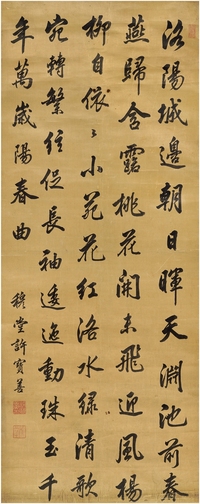 洛陽城邊朝日暉天淵池前春
燕歸含露桃花開未飛近風楊
柳自依〻小苑花紅洛水緑清歌
宛轉繁弦促長袖逶迤動珠玉千
年萬歲陽春曲
穆堂許寶善